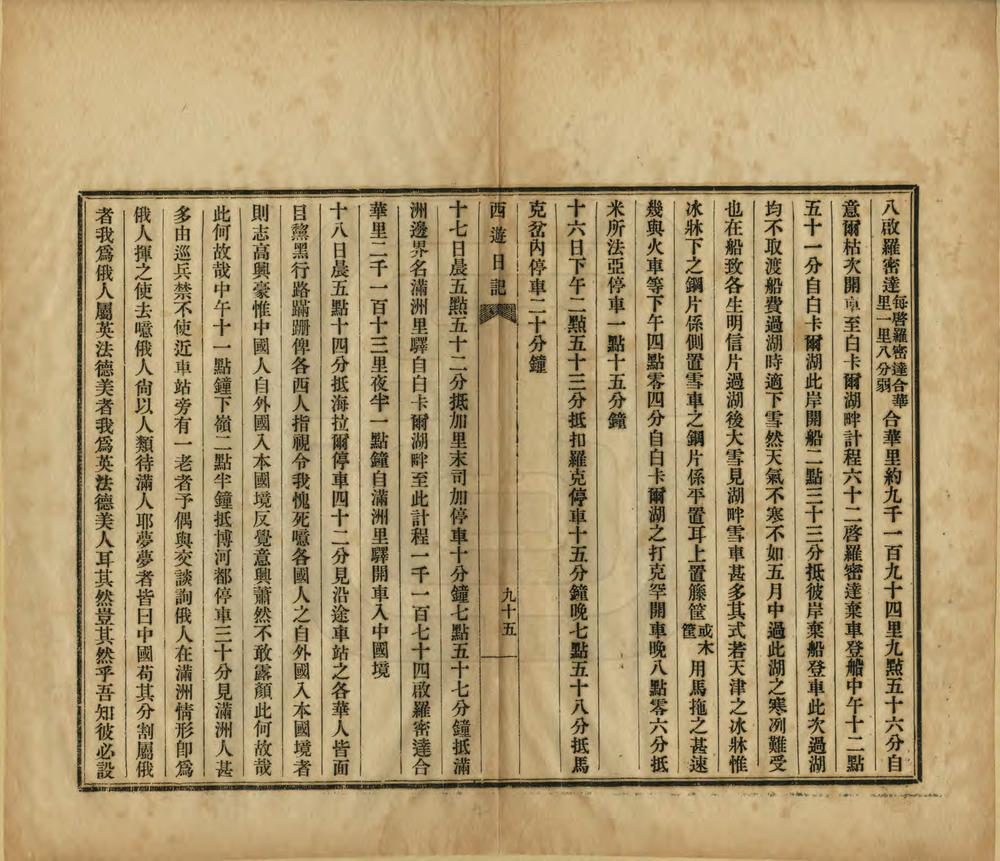 八啟羅密達每啓羅密達合華里一里八分弱合華里約九千一百九十四里九點五十六分自
意爾枯次開車至白卡爾湖畔計程六十二啓羅密達棄車登船中午十二點
五十一分自白卡爾湖此岸開船二點三十三分抵彼岸棄船登車此次過湖
均不取渡船費過湖時適下雪然天氣不寒不如五月中過此湖之寒冽難受
也在船致各生明信片過湖後大雪見湖畔雪車甚多其式若天津之冰牀惟
冰牀下之鋼片係側置雪車之鋼片係平置耳上置籐筐或木筐用馬拖之甚速
幾與火車等下午四點零四分自白卡爾湖之打克罕開車晚八點零六分抵
米所法亞停車一點十五分鐘
十六日下午二點五十三分抵扣羅克停車十五分鐘晚七點五十八分抵馬
克岔內停車二十分鐘
西遊日記 九十五
十七日晨五點五十二分抵加里末司加停車十分鐘七點五十七分鐘抵滿
洲邊界名滿洲里驛自白卡爾湖畔至此計程一千一百七十四啟羅密達合
華里二千一百十三里夜半一點鐘自滿洲里驛開車入中國境
十八日晨五點十四分抵海拉爾停車四十二分見沿途車站之各華人皆面
目黧黑行路蹣跚俾各西人指視令我愧死噫各國人之自外國入本國境者
則志高興豪惟中國人自外國入本國境反覺意興蕭然不敢露顏此何故哉
此何故哉中午十一點鐘下嶺二點半鐘抵博河都停車三十分見滿洲人甚
多由巡兵禁不使近車站旁有一老者予偶與交談詢俄人在滿洲情形卽爲
俄人揮之使去噫俄人尙以人類待滿人耶夢夢者皆曰中國苟其分割屬俄
者我爲俄人屬英法德美者我爲英法德美人耳其然豈其然乎吾知彼必設